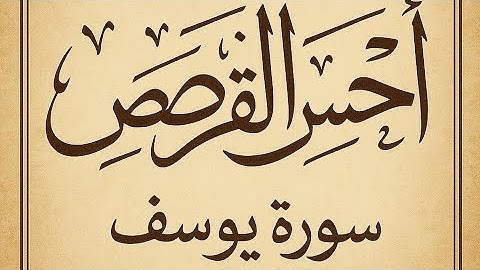 أحْسِ القرصَصِ
سورة يوسف